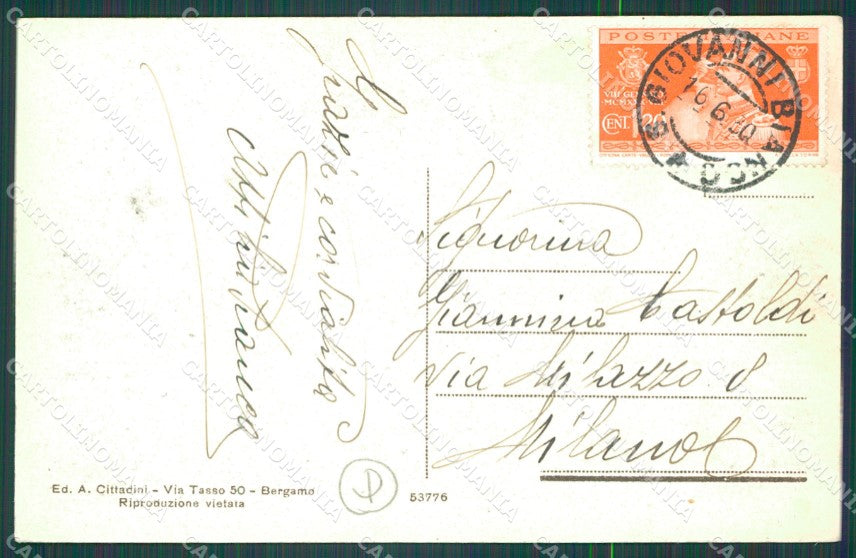 Grazie e cordialità
POSTE ITALIANE
VIII GEN
CENT. 20
S. GIOVANNI BIANCO
16.6.30
Signorina
Giannina Castoldi
Via Milazzo 8
Milano
Ed. A. Cittadini - Via Tasso 50 - Bergamo
Riproduzione vietata
53776
CARTOLINOMANIA